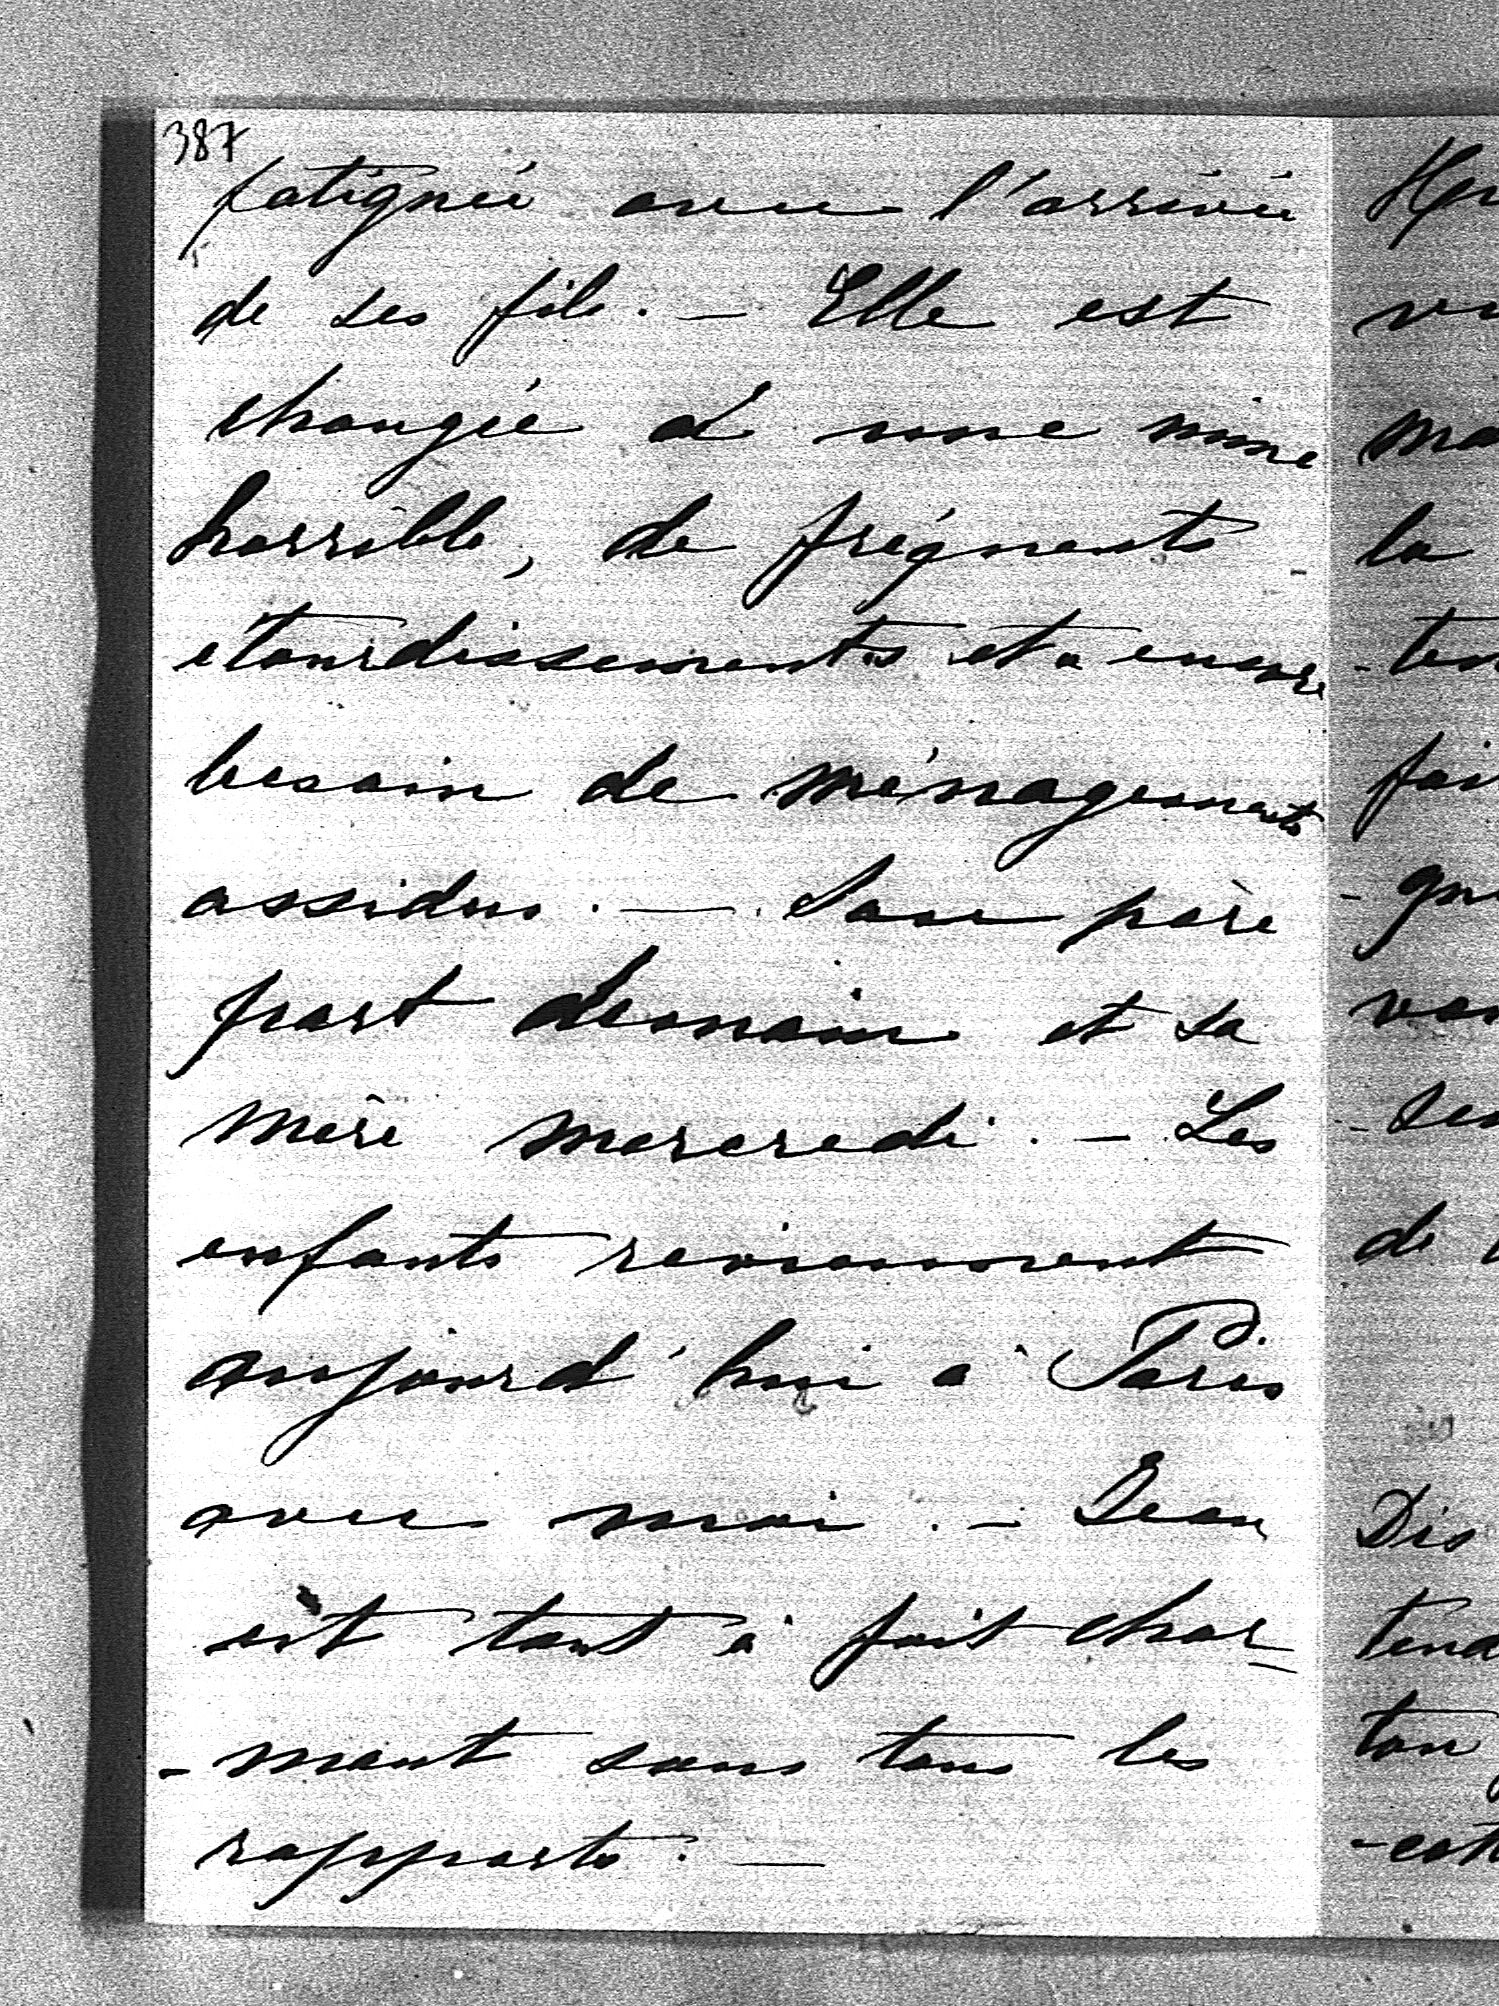 387
fatiguée avec l'arrivée
de ses fils. — Elle est
changée d'une mine
horrible, de fréquents
étourdissements et a encore
besoin de ménagements
assidus. — Son père
part demain et sa
mère mercredi. — Les
enfants reviennent
aujourd'hui à Paris
avec moi. — Jean
est tout à fait char-
-mant sous tous les
rapports. —
la
de
Dis
ton